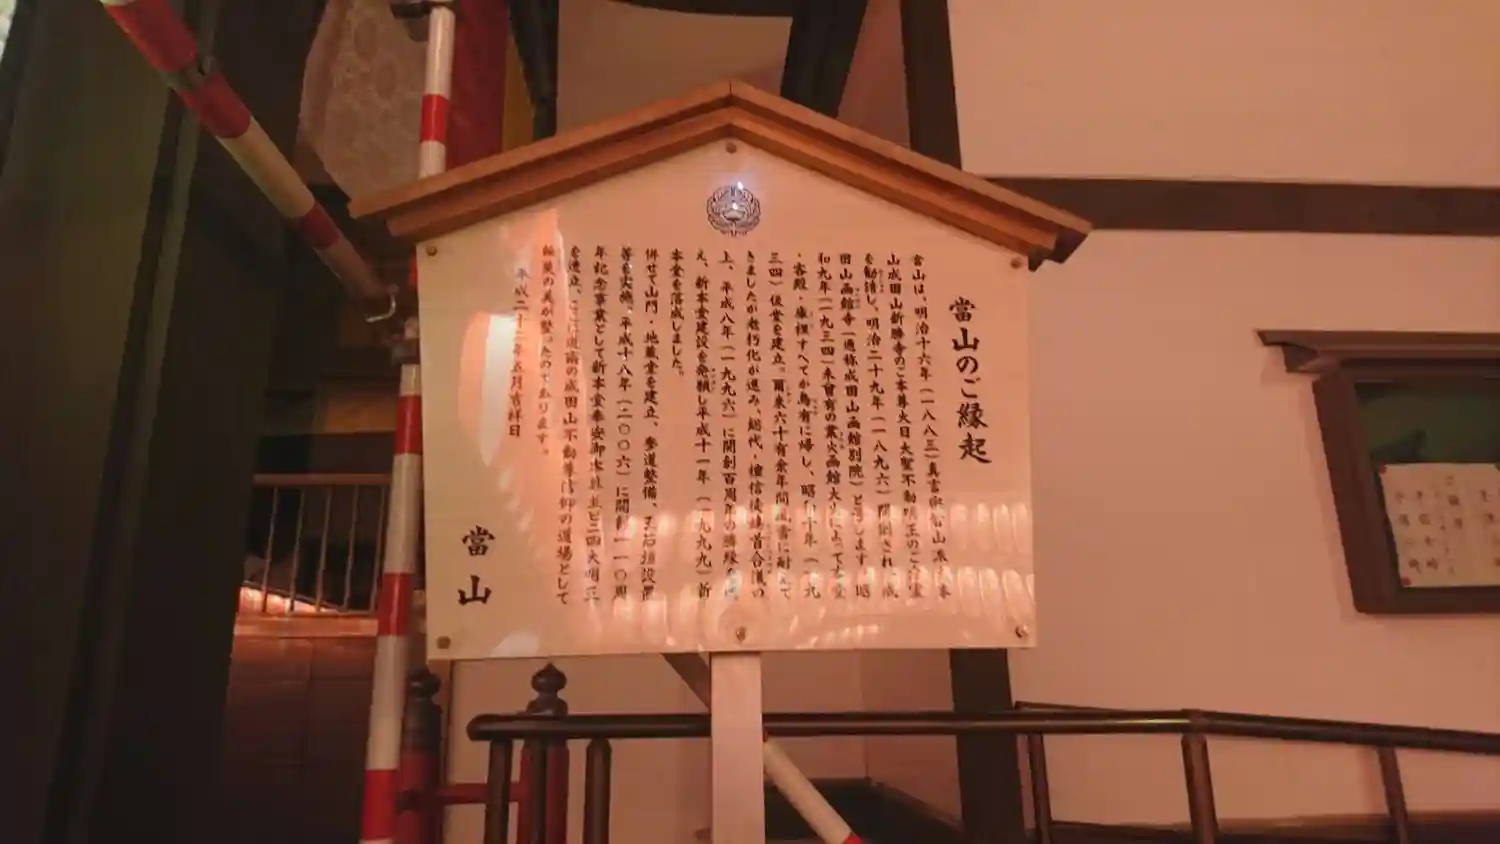 當山のご縁起
當山は、明治十六年(一八八三)真言宗智山派 本
山成田山新勝寺のご本尊大日大聖不動明王のご分霊
を勧請し、明治二十九年(一八九六)開創され、成
田山函館寺(通称成田山函館別院)と号します。昭
和九年(一九三四)未曾有の業火函館大火によって本堂
・客殿・庫裡すべてが烏有に帰し、昭和十年(一九
三四)仮堂を建立。爾来六十有余年間風雪に耐えて
きましたが老朽化が進み、総代・檀信徒 首合議の
上、平成八年(一九九六)に開創百周年の勝縁を
え、新本堂建設を発願し平成十一年(一九九九)新
本堂を落成しました。
併せて山門・地蔵堂を建立、参道整備、玉石垣設置
等を実施。平成十八年(二〇〇六)に開創一一〇周
年記念事業として新本堂奉安御本尊並びに四大明王
を造立、ここに道南の成田山不動尊信仰の道場として
輪奐の美が整ったのであります。
平成二十二年五月吉祥日
當山